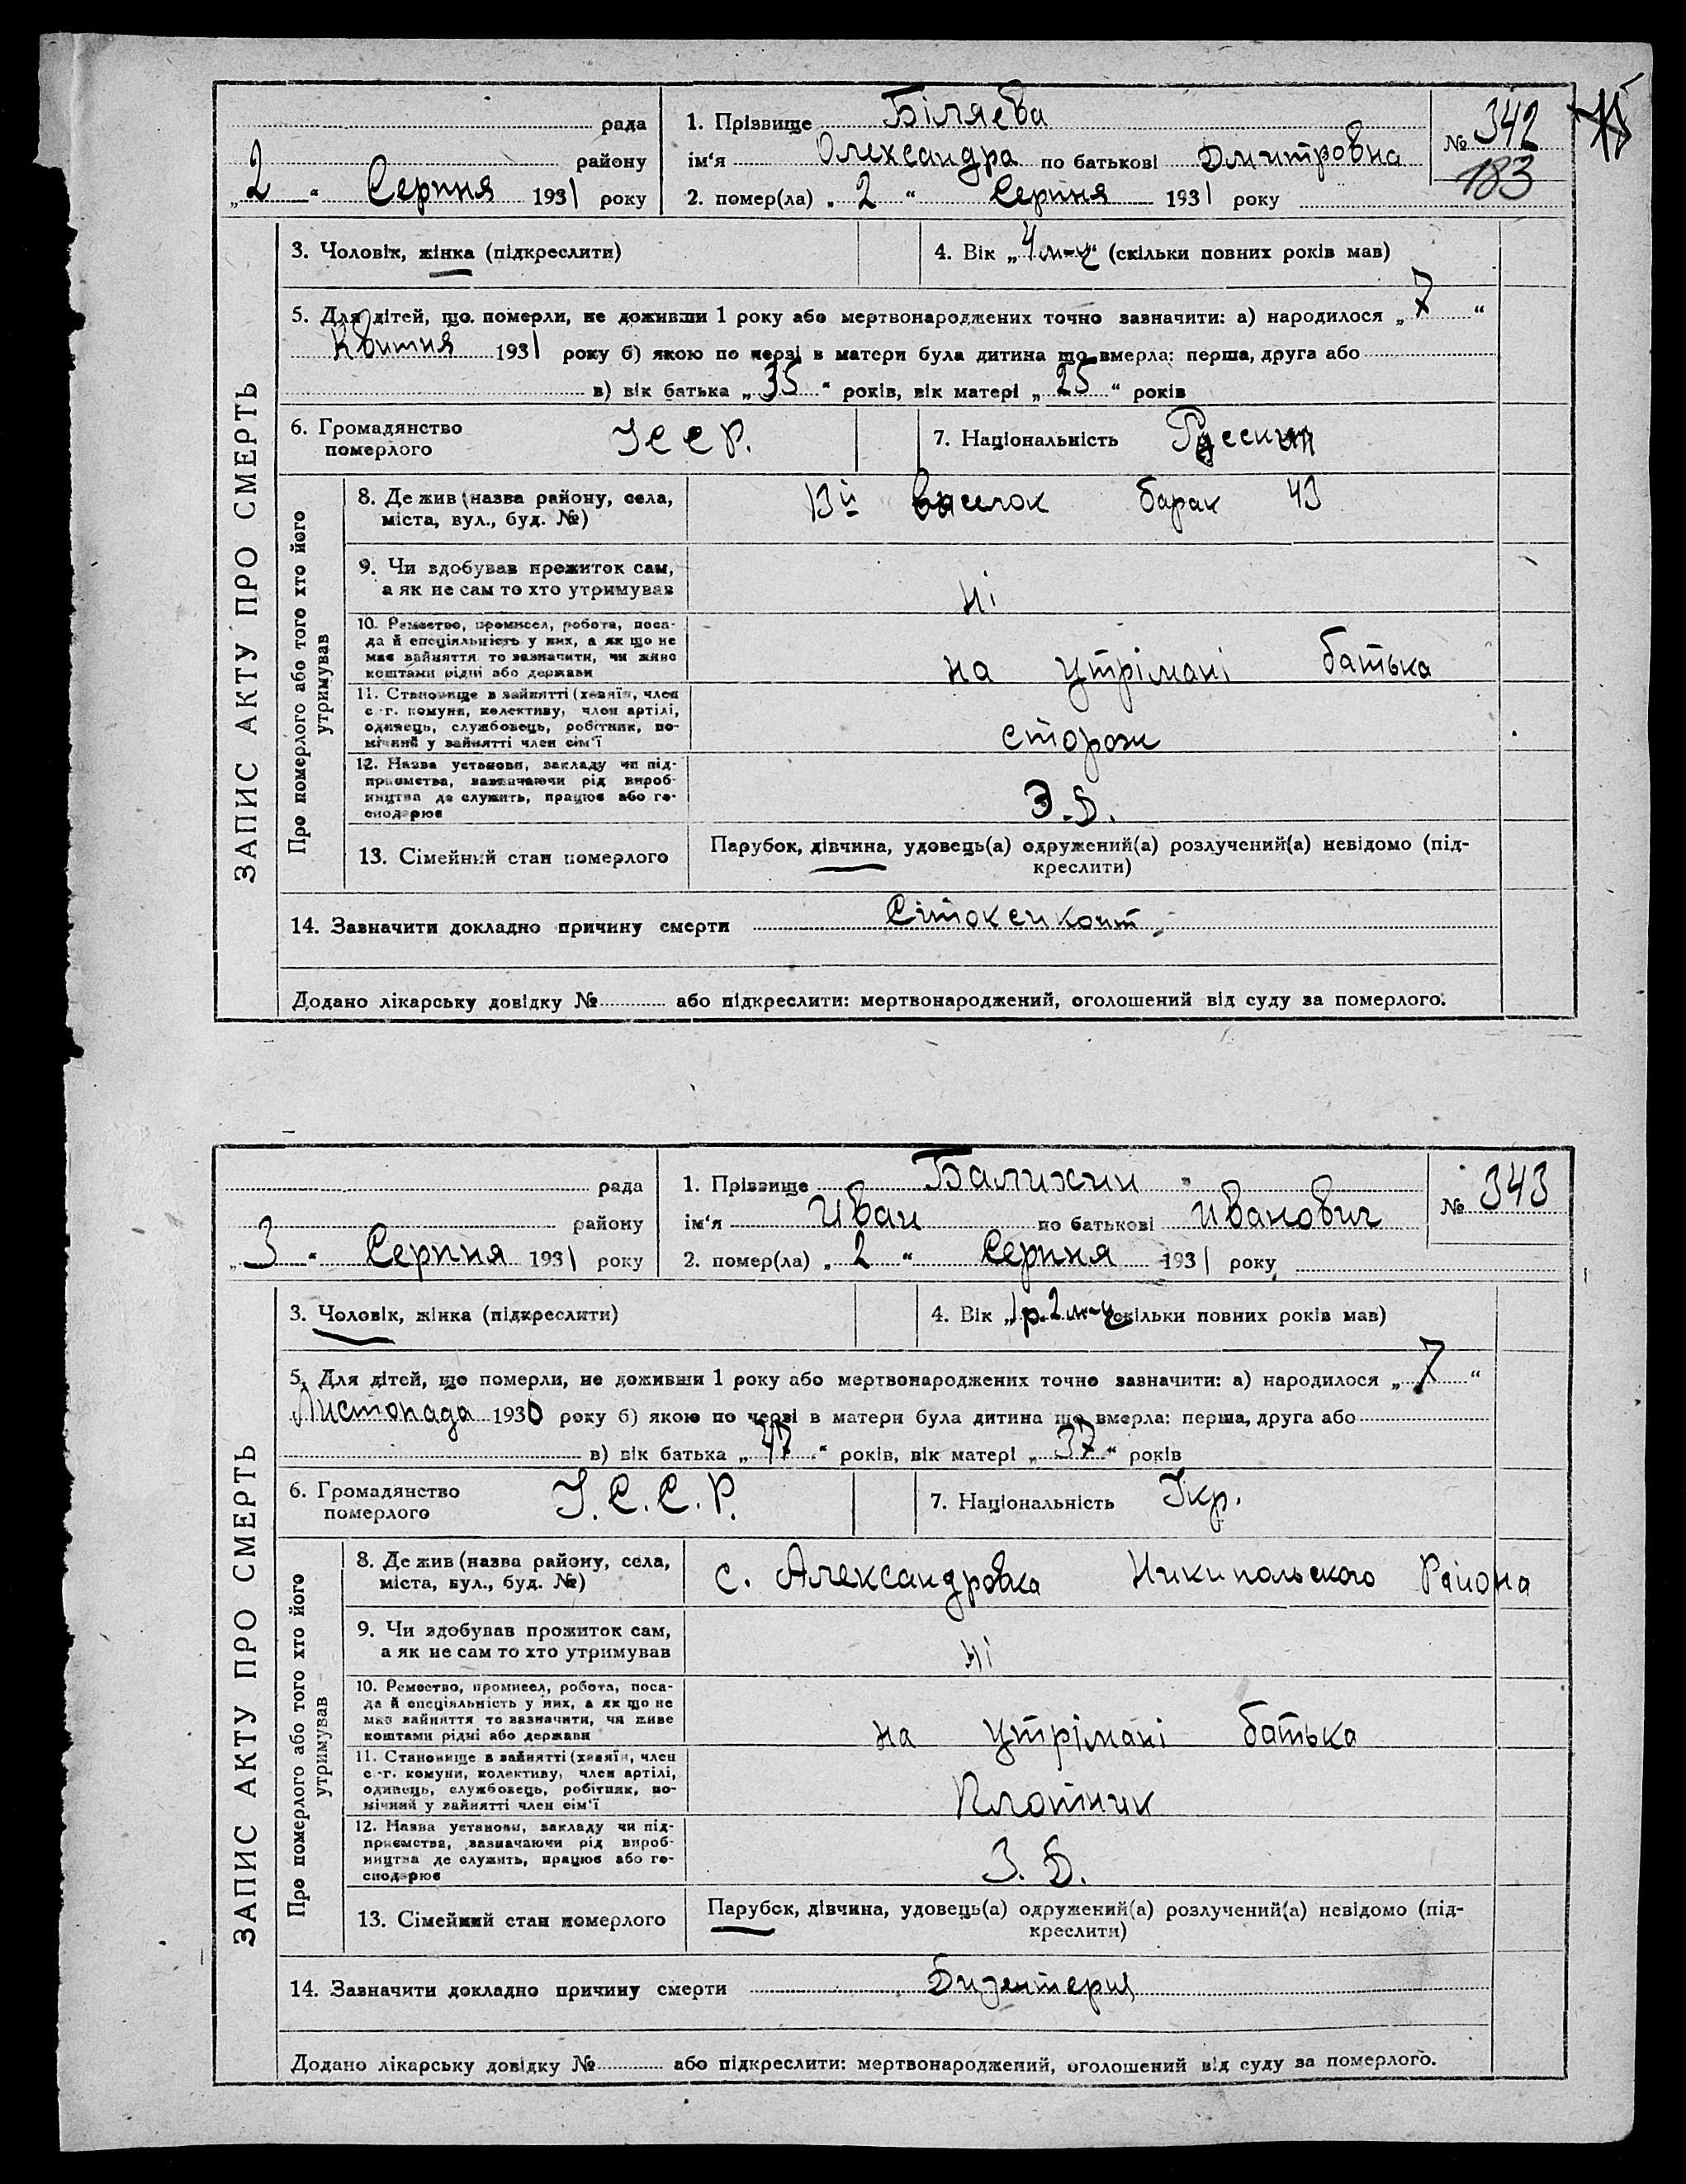 рада
району
„ 2 “ Серпня 1931 року
1. Прізвище Біляєва
ім'я Олександра по батькові Дмитровна
2. помер(ла) „ 2 “ Серпня 1931 року
№ 342
183
ЗАПИС АКТУ ПРО СМЕРТЬ
3. Чоловік, жінка (підкреслити)
4. Вік „ 4 м-ц “ (скільки повних років мав)
5. Для дітей, що померли, не доживши 1 року або мертвонароджених точно зазначити: а) народилося „ 7 “
Квітня 1931 року б) якою по черзі в матери була дитина що вмерла: перша, друга або
в) вік батька „ 35 “ років, вік матері „ 25 “ років
6. Громадянство
померлого
УССР.
7. Національність
Про померлого або того хто його
утримував
8. Де жив (назва району, села,
міста, вул., буд. №)
13й виселок барак 43
9. Чи здобував прожиток сам,
а як не сам то хто утримував
ні
10. Ремество, промисел, робота, поса-
да й спеціяльність у них, а як що не
має зайняття то зазначити, чи живе
коштами рідні або держави
на утрімані батька
11. Становище в зайнятті (хазяїн, член
с.-г. комуни, колективу, член артілі,
одинець, службовець, робітник, по-
мічний у зайнятті член сім'ї
сторож
12. Назва установи, закладу чи під-
приємства, зазначаючи рід вироб-
ництва де служить, працює або го-
сподарює
З.Б.
13. Сімейний стан померлого
Парубок, дівчина, удовець(а) одружений(а) розлучений(а) невідомо (під-
креслити)
14. Зазначити докладно причину смерти
Додано лікарську довідку № або підкреслити: мертвонароджений, оголошений від суду за померлого.
рада
району
„ 3 “ Серпня 1931 року
1. Прізвище Балихин
ім'я Иван по батькові Иванович
2. помер(ла) „ 2 “ Серпня 1931 року
№ 343
ЗАПИС АКТУ ПРО СМЕРТЬ
3. Чоловік, жінка (підкреслити)
4. Вік „ 1р. 2 м-ц скільки повних років мав)
5. Для дітей, що померли, не доживши 1 року або мертвонароджених точно зазначити: а) народилося „ 7 “
Листопада 1930 року б) якою по черзі в матери була дитина що вмерла: перша, друга або
в) вік батька „ 47 “ років, вік матері „ 37 “ років
6. Громадянство
померлого
У.С.С.Р.
7. Національність Укр.
Про померлого або того хто його
утримував
8. Де жив (назва району, села,
міста, вул., буд. №)
с. Александровка Никипольского Района
9. Чи здобував прожиток сам,
а як не сам то хто утримував
ні
10. Ремество, промисел, робота, поса-
да й спеціяльність у них, а як що не
має зайняття то зазначити, чи живе
коштами рідні або держави
на утрімані батька
11. Становище в зайнятті (хазяїн, член
с.-г. комуни, колективу, член артілі,
одинець, службовець, робітник, по-
мічний у зайнятті член сім'ї
Плотник
12. Назва установи, закладу чи під-
приємства, зазначаючи рід вироб-
ництва де служить, працює або го-
сподарює
З.Б.
13. Сімейний стан померлого
Парубок, дівчина, удовець(а) одружений(а) розлучений(а) невідомо (під-
креслити)
14. Зазначити докладно причину смерти Дизентерия
Додано лікарську довідку № або підкреслити: мертвонароджений, оголошений від суду за померлого.